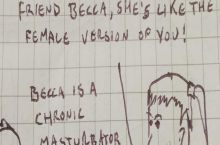 FRIEND BECCA, SHE'S LIKE THE
FEMALE VERSION OF YOU!
BECCA IS A
CHRONIC
MASTURBATOR